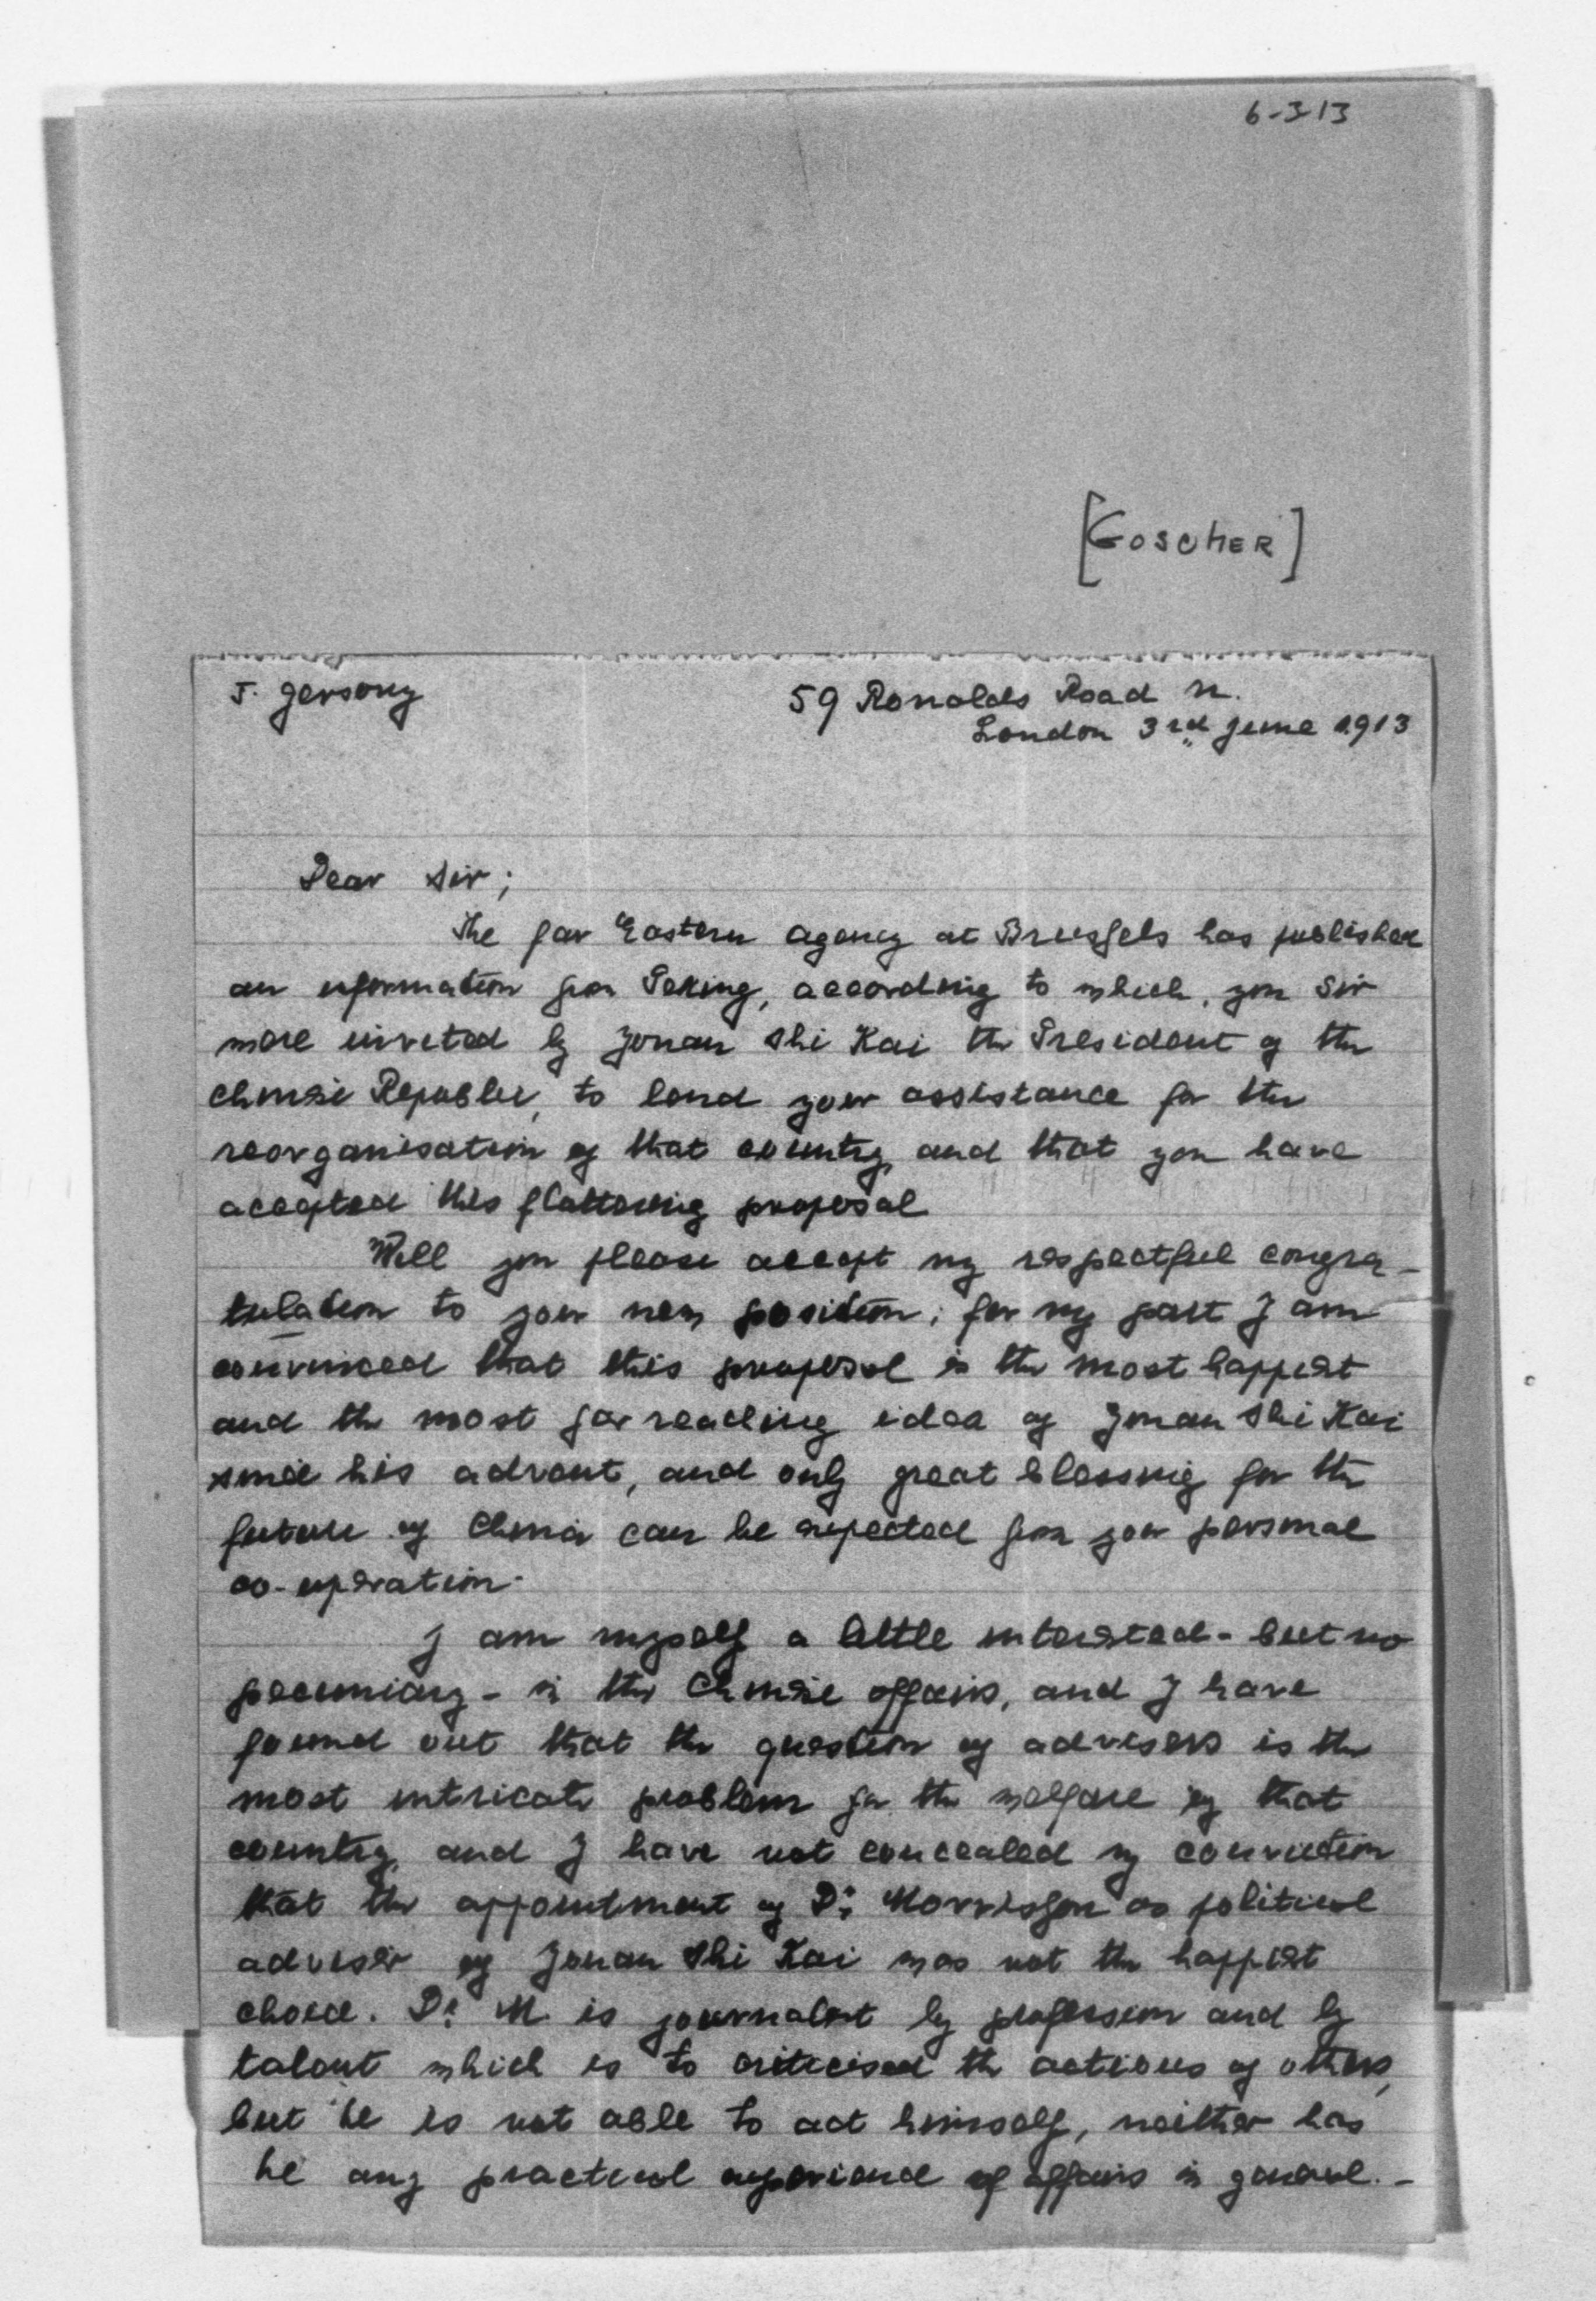 6-3-13
[GOSCHER]
J. Gersony
59 Ronalds Road N.
London 3rd June 1913
Dear Sir;
The far Eastern Agency at Brussels has published
an information from Peking, according to which, you Sir
were invited by Yonan Shi Kai the President of the
Chinese Republic, to lend your assistance for the
reorganisation of that country, and that you have
accepted this flattering proposal
Will you please accept my respectful congra-
tulation to your new position; for my part I am
convinced that this proposal is the most happiest
and the most far reaching idea of Yonan Shi Kai
since his advent, and only great blessing for the
future of China can be expected from your personal
co-operation.
I am myself a little interested - but no
pecuniary - in the Chinese affairs, and I have
found out that the question of advisers is the
most intricate problem for the welfare of that
country, and I have not concealed my conviction
that the appointment of Dr. Morrisson as political
adviser of Yonan Shi Kai was not the happiest
choice. Dr. M. is journalist by profession and by
talent which is to criticised the actions of others,
but he is not able to act himself, neither has
he any practical experience of affairs in general. -